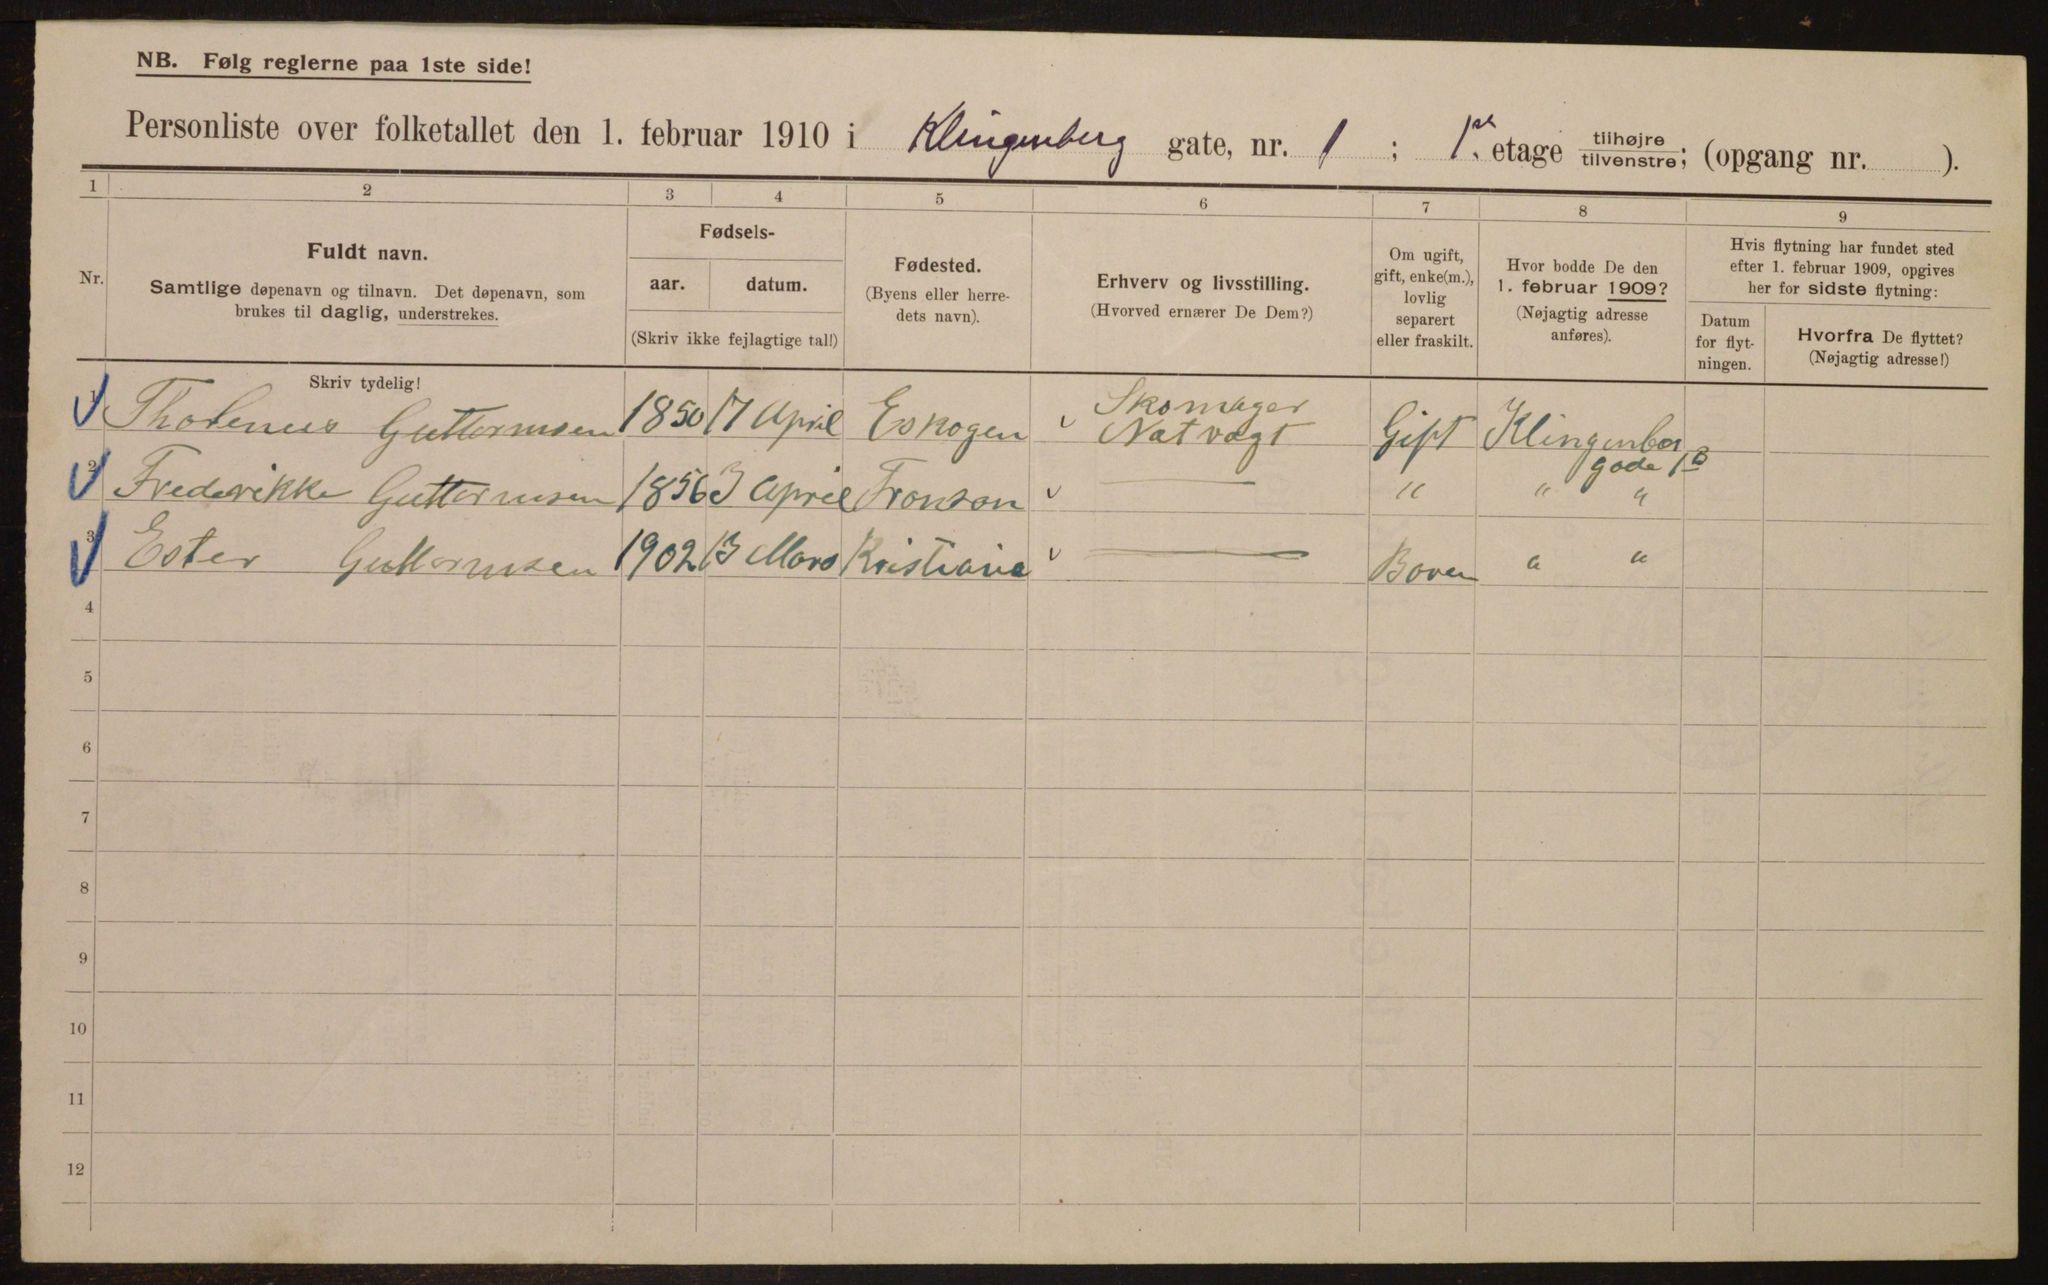 NB. Følg reglerne paa 1ste side!
Personliste over folketallet den 1. februar 1910 i Klingenberg gate, nr. 1 ; 1ste etage tilhøjre/tilvenstre; (opgang nr. ).
1 2 3 4 5 6 7 8 9
Nr.
Fuldt navn.
Samtlige døpenavn og tilnavn. Det døpenavn, som
brukes til daglig, understrekes.
Fødsels-
aar. datum.
(Skriv ikke fejlagtige tal!)
Fødested.
(Byens eller herre-
dets navn).
Erhverv og livsstilling.
(Hvorved ernærer De Dem?)
Om ugift,
gift, enke(m.),
lovlig
separert
eller fraskilt.
Hvor bodde De den
1. februar 1909?
(Nøjagtig adresse
anføres).
Hvis flytning har fundet sted
efter 1. februar 1909, opgives
her for sidste flytning:
Datum
for flyt-
ningen.
Hvorfra De flyttet?
(Nøjagtig adresse!)
Skriv tydelig!
1 Thorenus Guttormsen 1850 17 April Eskogen Skomager Natvagt Gift Klingenber gade 1B
2 Frederikke Guttormsen 1856 3 April Fronson — " " "
3 Ester Guttormsen 1902 13 Mars Kristiania — Baren " "
4
5
6
7
8
9
10
11
12